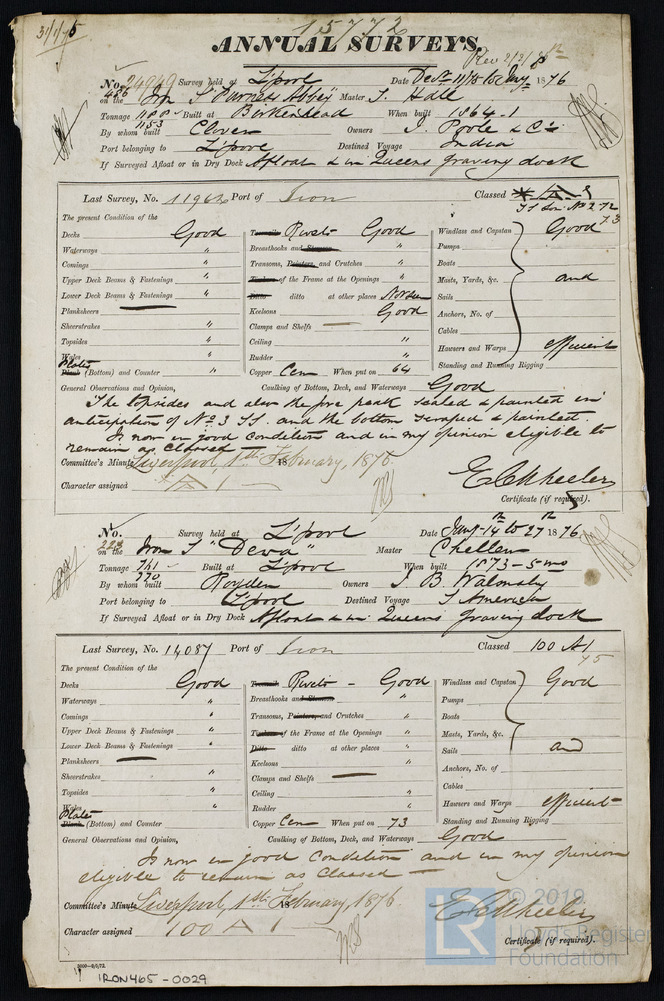 31/1/75
15772
ANNUAL SURVEYS.
No. 24949 Survey held at L'pool Date Decr 11/75 to Jany 1876
on the Iron S "Furness Abbey" Master J. Hall
Tonnage 1188 1153 Built at Birkenhead When built 1864-1
By whom built Clover Owners J. Poole & Co.
Port belonging to L'pool Destined Voyage India
If Surveyed Afloat or in Dry Dock Afloat & in Queens graving dock
Last Survey, No. 11962 Port of Iron Classed A 1
The present Condition of the
Decks Good Rivets Good Windlass and Capstan Good
Waterways " Breasthooks and Stemson " Pumps
Comings " Transoms, Pointers, and Crutches " Boats
Upper Deck Beams & Fastenings " Timbers of the Frame at the Openings " Masts, Yards, &c. and
Lower Deck Beams & Fastenings " Ditto ditto at other places Sails
Planksheers Keelsons Good Anchors, No. of
Sheerstrakes " Clamps and Shelfs Cables
Topsides " Ceiling " Hawsers and Warps efficient
Wales Rudder " Standing and Running Rigging
Plates Plank (Bottom) and Counter " Copper Cem When put on 64
General Observations and Opinion, Caulking of Bottom, Deck, and Waterways Good
The topsides and also the fore peak scaled & painted in
anticipation of No. 3 SS. and the bottom scraped & painted.
Is now in good condition and in my opinion eligible to
remain as Classed
Committee's Minute Liverpool, 1st February, 1876.
Character assigned A 1
E C Wheeler
Certificate (if required).
No. 223 Survey held at L'pool Date Jany 14th to 27th 1876
on the Iron S "Deva" Master Chellew
Tonnage 741 770 Built at L'pool When built 1873-5 mo
By whom built Royden Owners J. B. Walmsly
Port belonging to L'pool Destined Voyage S America
If Surveyed Afloat or in Dry Dock Afloat & in Queens graving dock
Last Survey, No. 14087 Port of Iron Classed 100 A1
75
The present Condition of the
Decks Good Rivets - Good Windlass and Capstan Good
Waterways " Breasthooks and Stemson " Pumps
Comings " Transoms, Pointers, and Crutches " Boats
Upper Deck Beams & Fastenings " Timbers of the Frame at the Openings " Masts, Yards, &c.
Lower Deck Beams & Fastenings " Ditto ditto at other places " Sails and
Planksheers Keelsons " Anchors, No. of
Sheerstrakes " Clamps and Shelfs Cables
Topsides " Ceiling " Hawsers and Warps efficient
Wales " Rudder " Standing and Running Rigging
Plates Plank (Bottom) and Counter Copper Cem When put on 73
General Observations and Opinion, Caulking of Bottom, Deck, and Waterways Good
Is now in good condition and in my opinion
eligible to remain as classed
Committee's Minute Liverpool, 1st February, 1876.
Character assigned 100 A 1
E C Wheeler
Certificate (if required).
IRON465-0029
LR
© 2019
Lloyd's Register
Foundation